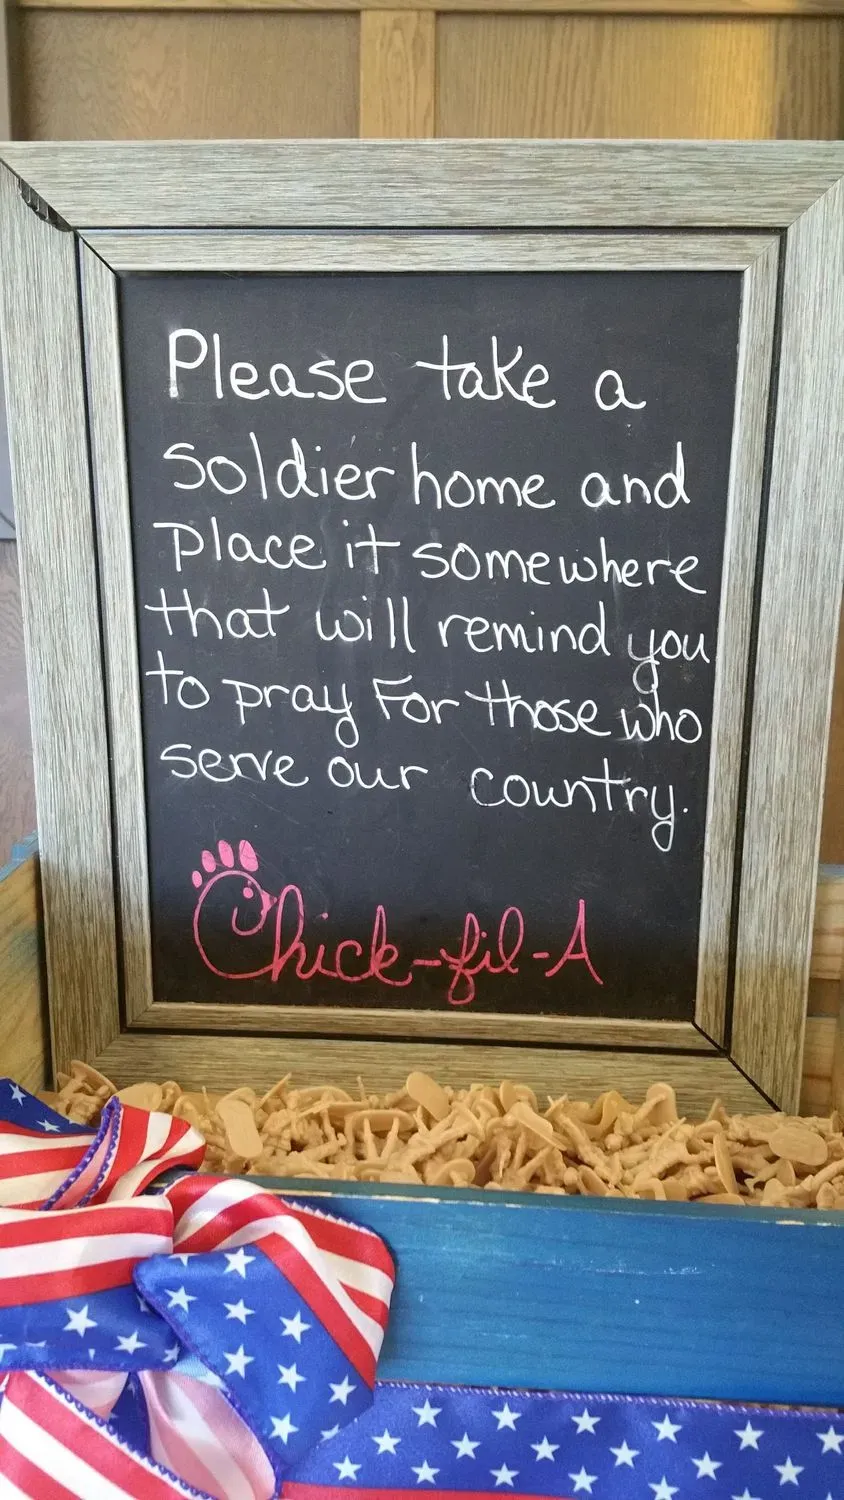 Please take a
soldier home and
place it somewhere
that will remind you
to pray For those who
serve our country.
Chick-fil-A